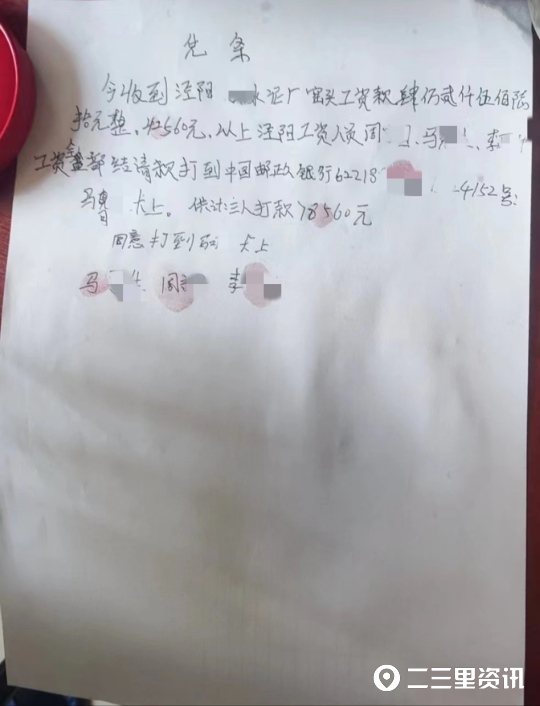 兑条
今收到泾阳 水泥厂窑头工资款肆仟贰仟伍佰陆
拾元整,42560元,以上泾阳工资人员周 马 李
工资全部经请款打到中国邮政银行62218 4152号:
马 卡上。供计三人打款78560元
同意打到 卡上
马 周 李
二三里资讯